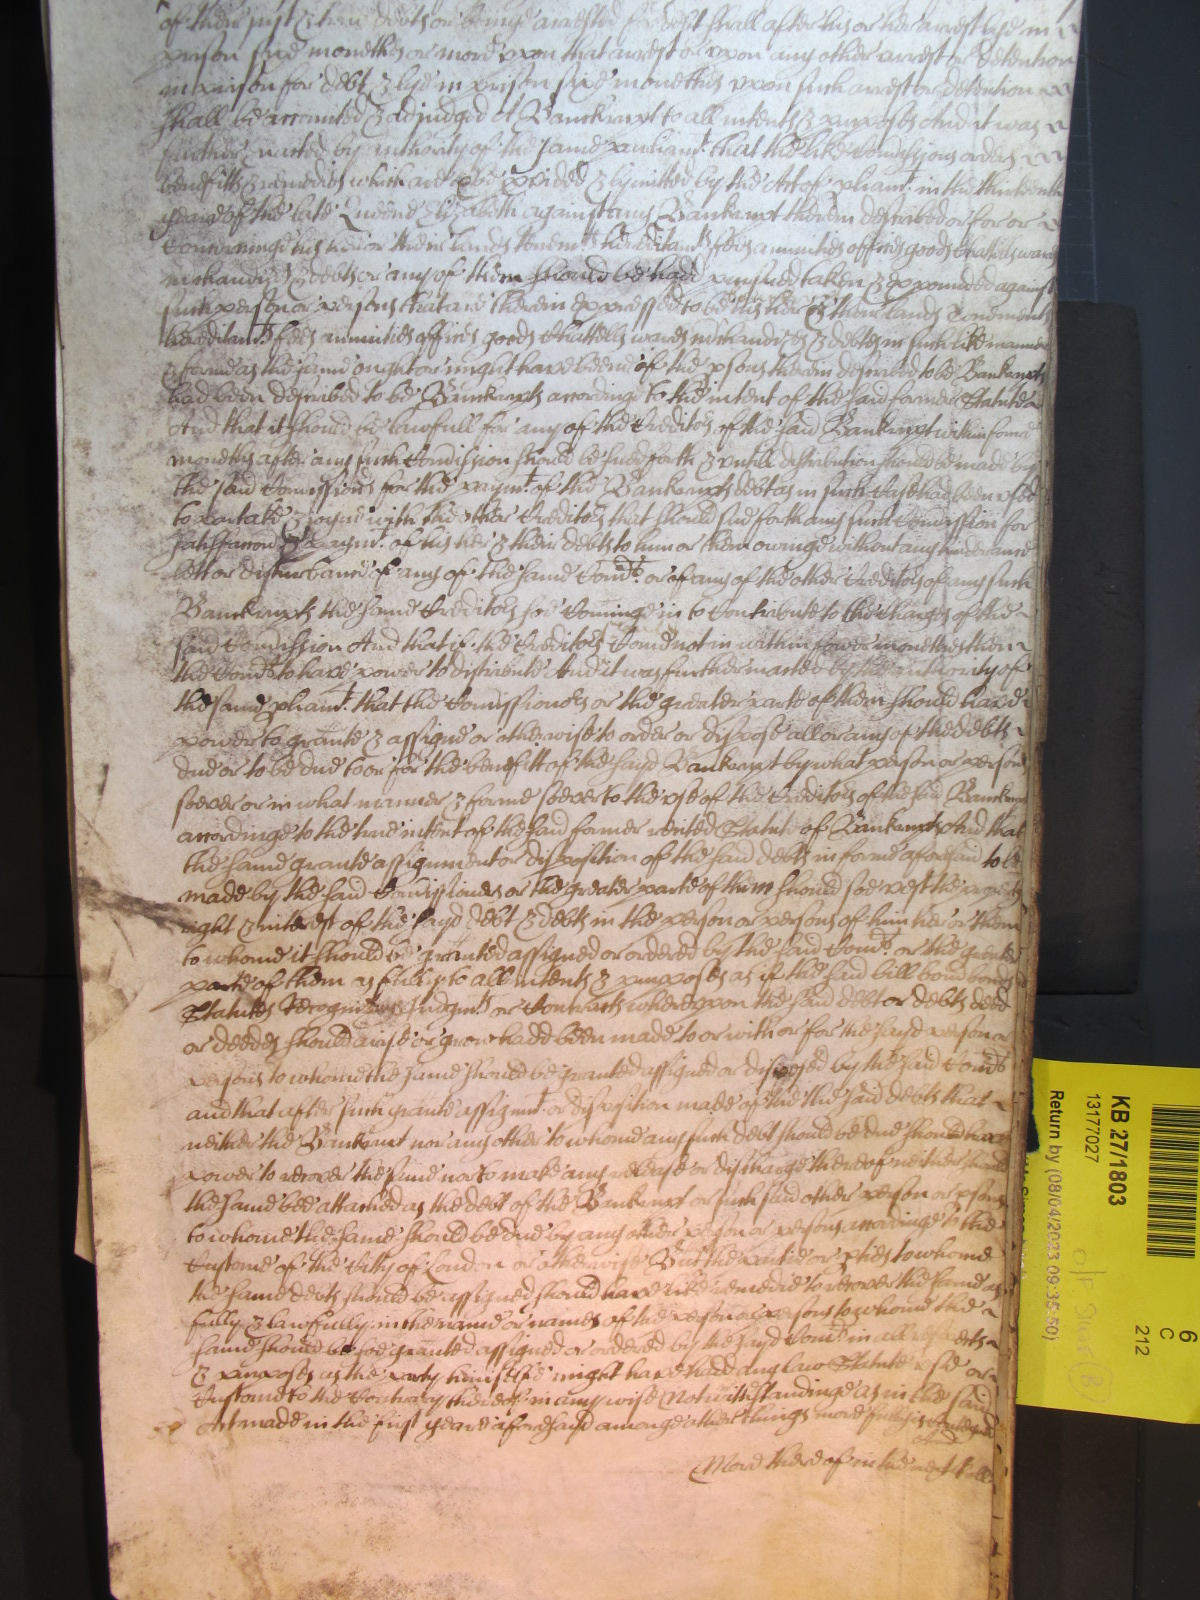 of their just & true debts or being arrested for debt shall after his or her arrest lye in
prison six monethes or more upon that arrest or upon any other arrest or detention
in prison for debt & lye in prison six monethes upon such arrest or detention
shall be accounted & adjudged A Banckrupt to all intents & purposes And it was
further enacted by authority of the same parliamt. that the like Comissions orders
benefitts & remedies which are provided & lymitted by the Act of pliamt. in the thirteenth
yeare of the late Queene Elizabeth against any Banckrupt therein described or for or
Concerninge his her or their lands tenemts. hereditamts. fees annuities offices goods Chattells wares
mrchandizes & debts or any of them should be hadd pursued taken & expounded against
such person or persons that are therein expressed to be his her & their lands Tenements
hereditamts. fees annuities offices goods Chattells wares mrchandizes & debtes in such like manner
& forme as the same ought or might have beene if the psons therein described to be Banckrupts
had been described to be Banckrupts according to the intent of the said former Statute
And that it should be lawfull for any of the Creditors of the said Banckrupt within fower
monethes after any such Comission should be sued forth & untill distribution should be made by
the said Comissioners for the paymt. of the Banckrupts debt as in such Case had been used
to partake & joyne with the other Creditors that should sue forth any such Comission for
satisfaccon & paymt. of his her & their debts to him or them owinge without any hinderance
lett or disturbance of any of the same Comrs. or of any of the other Creditors of any such
Banckrupts the same Creditors soe Cominge in to Contribute to the Charges of the
said Comission And that if the Creditors Come not in within fower monethes then
the Comrs. to have power to distribute And it was further enacted by the authority of
the same pliamt. that the Comissioners or the greater parte of them should have
power to grante & assigne or otherwise to order or dispose all or any of the debts
due or to be due to or for the benefitt of the sayd Banckrupt by what person or persons
soever or in what manner & forme soever to the use of the Creditors of the said Banckrupt
accordinge to the true intent of the said former recited Statute of Banckrupts And that
the same grante assignment or disposition of the said debts in forme aforesaid to be
made by the said Comissioners or the greater parte of them should soe vest the property
right & interest of the sayd debt & debts in the person or persons of him her or them
to whome it should be granted assigned or ordered by the said Comrs. or the greater
parte of them as fully to all intents & purposes as if the said bill bond bonds
Statutes Recognizances Judgmts. or Contracts whereupon the said debt or debts deed
or deedes should arise or grow hadd been made to or with or for the sayd person or
persons to whome the same should be granted assigned or disposed by the said Comrs.
and that after such grante assignmt. or disposition made of the the said debts that
neither the Banckrupt nor any other to whome any such debt should be due should have
power to recover the same nor to make any release or discharge thereof neither should
the same bee attached as the debt of the Banckrupt or such said other person or psons
to whome the same should be due by any other person or persons accordinge to the
Custome of the Citty of London or otherwise But the partie or pties to whome
the same debts should be assigned should have like remedie to recover the same as
fully & lawfully in the name or names of the person or persons to whome the
same should be soe granted assigned or ordered by the sayd Comrs. in all respects
& purposes as the party himselfe might have hadd any law Statute use or
Custome to the Contrary thereof in any wise Notwithstandinge as in the said
Act made in the first yeare aforesayd amongst other things more fully is Conteyned
And
More thereof in the next Roll
KB 27/1803
13177027
Return by (08/04/2023 09:35:50)
6
C
212